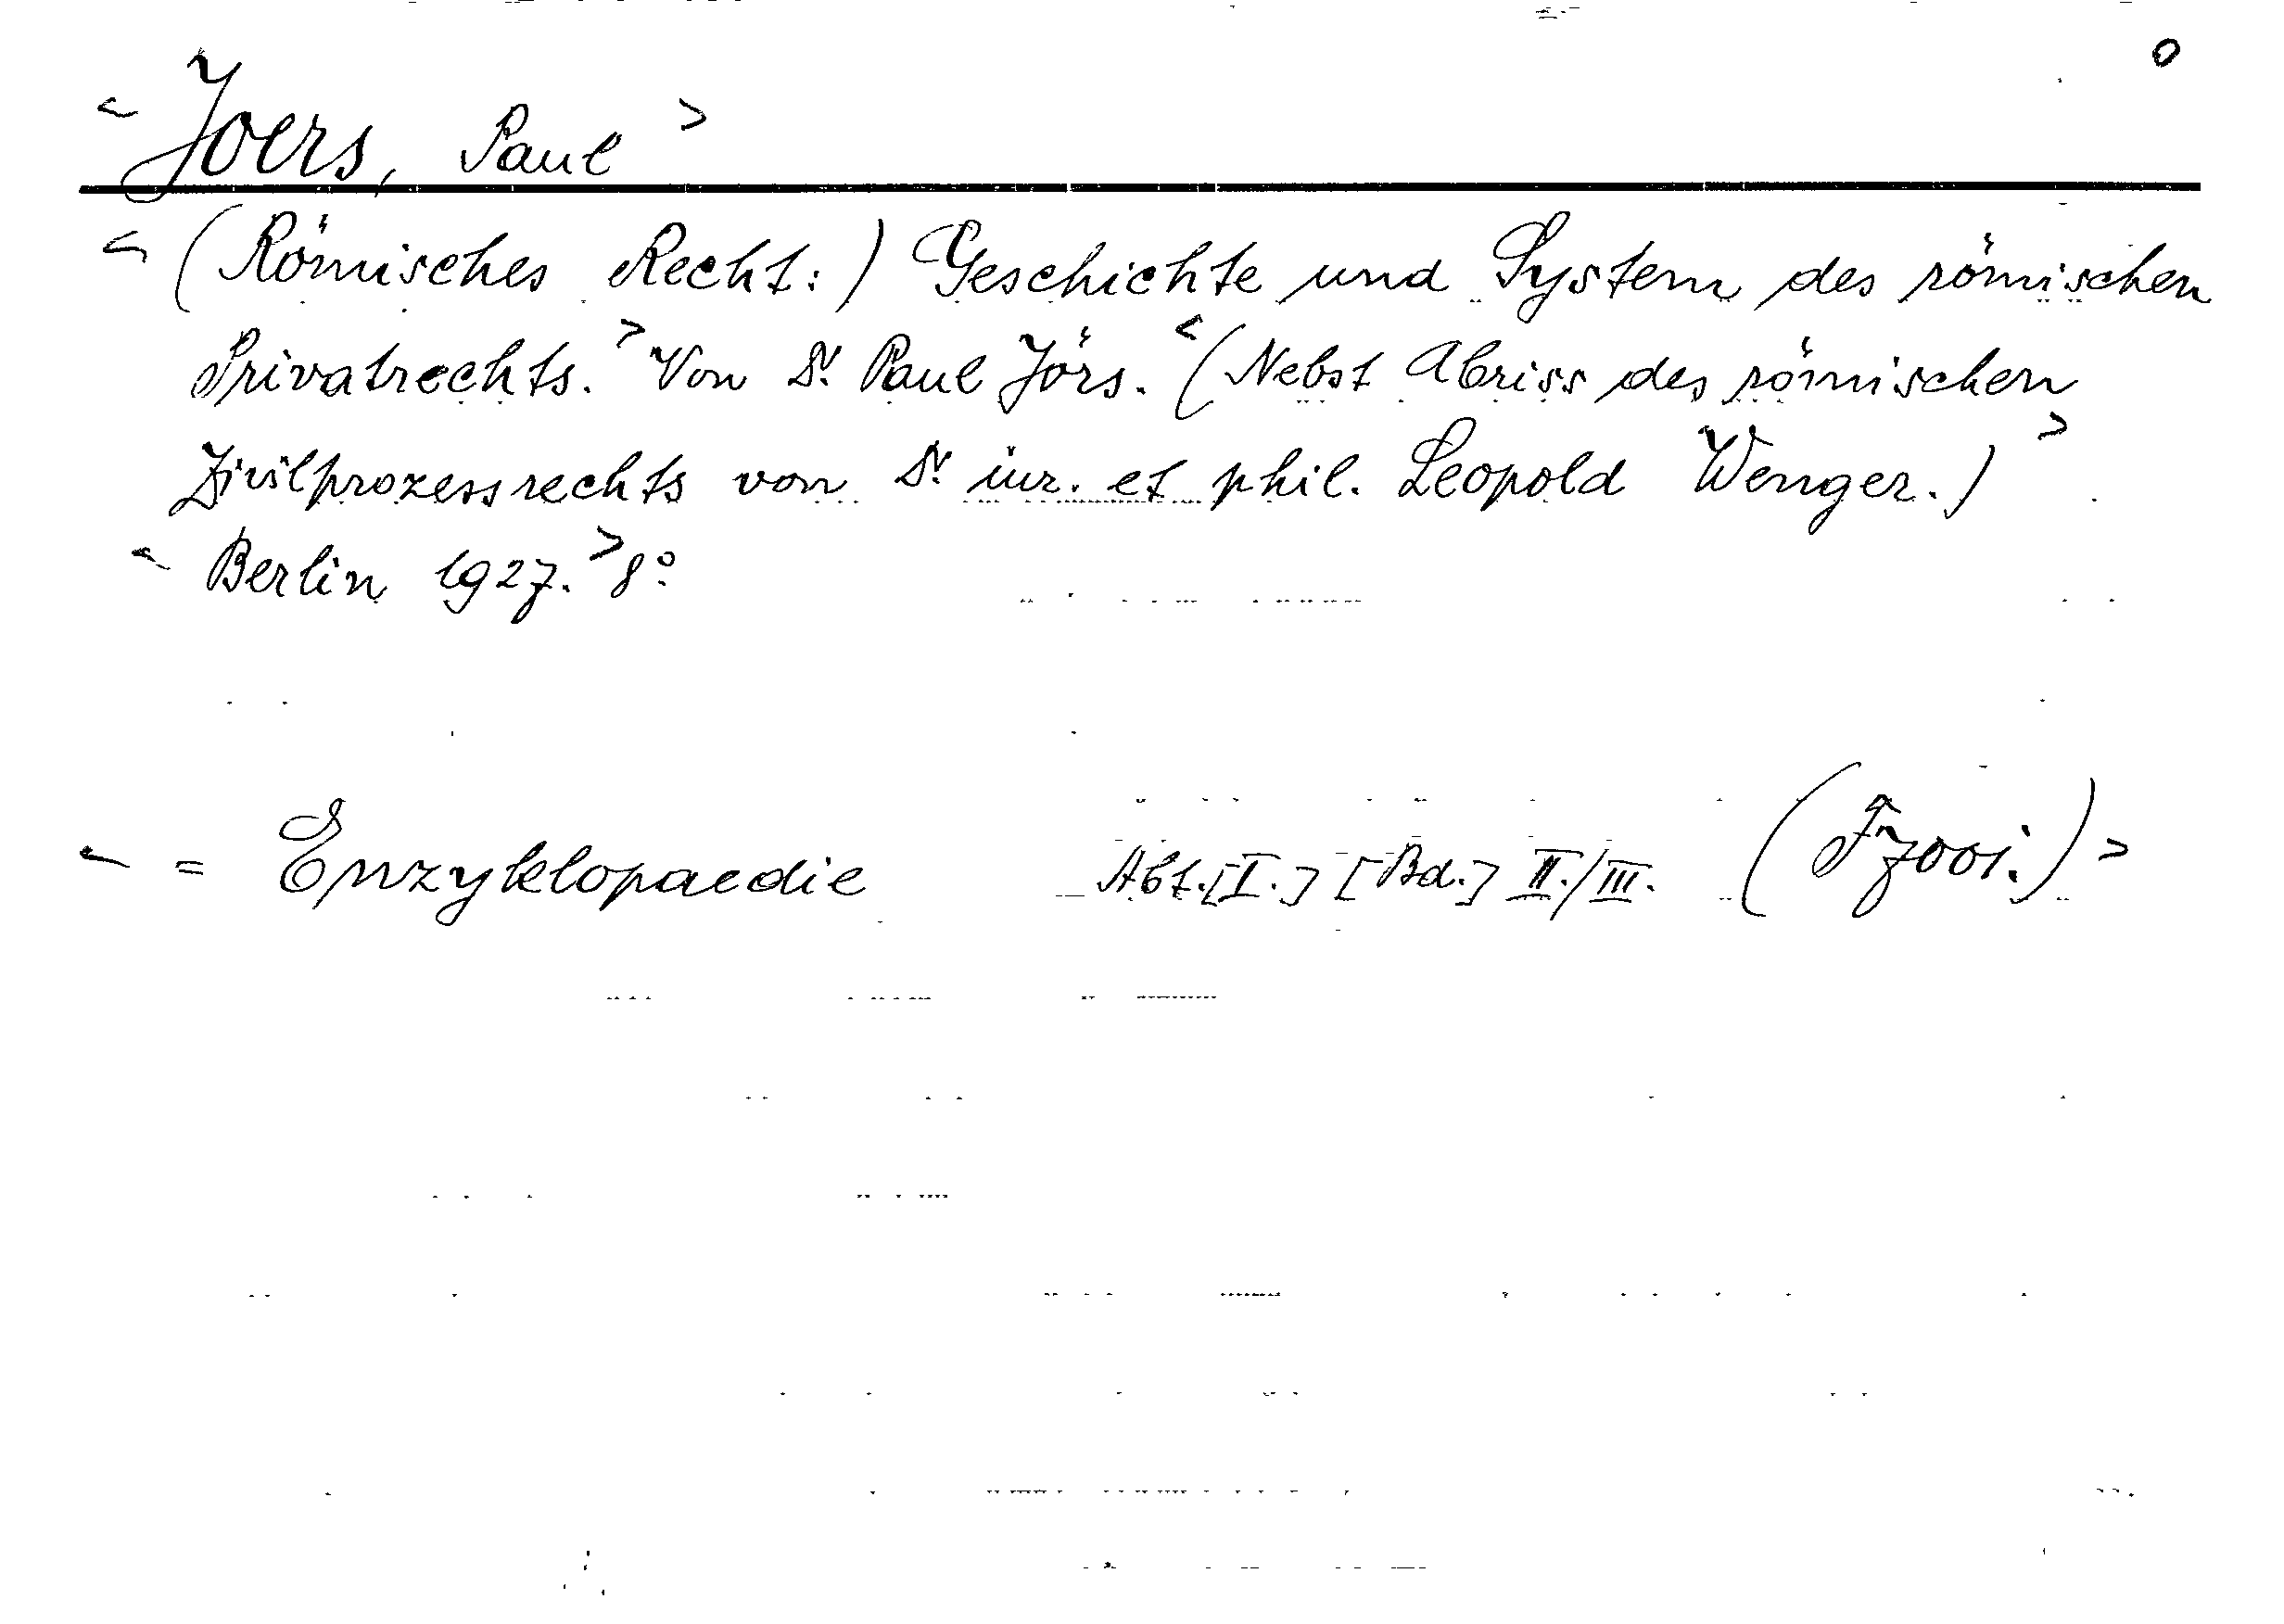 o
< Joers, Paul >
< (Römisches Recht:) Geschichte und System des römischen
Privatrechts. > Von Dr. Paul Jörs. < (Nebst Abriss des römischen
Zivilprozessrechts von Dr. iur. et phil. Leopold Wenger.) >
< Berlin 1927. > 8°
< = Enzyklopaedie Abt.[I.] [Bd.] II./III. (F7001.) >